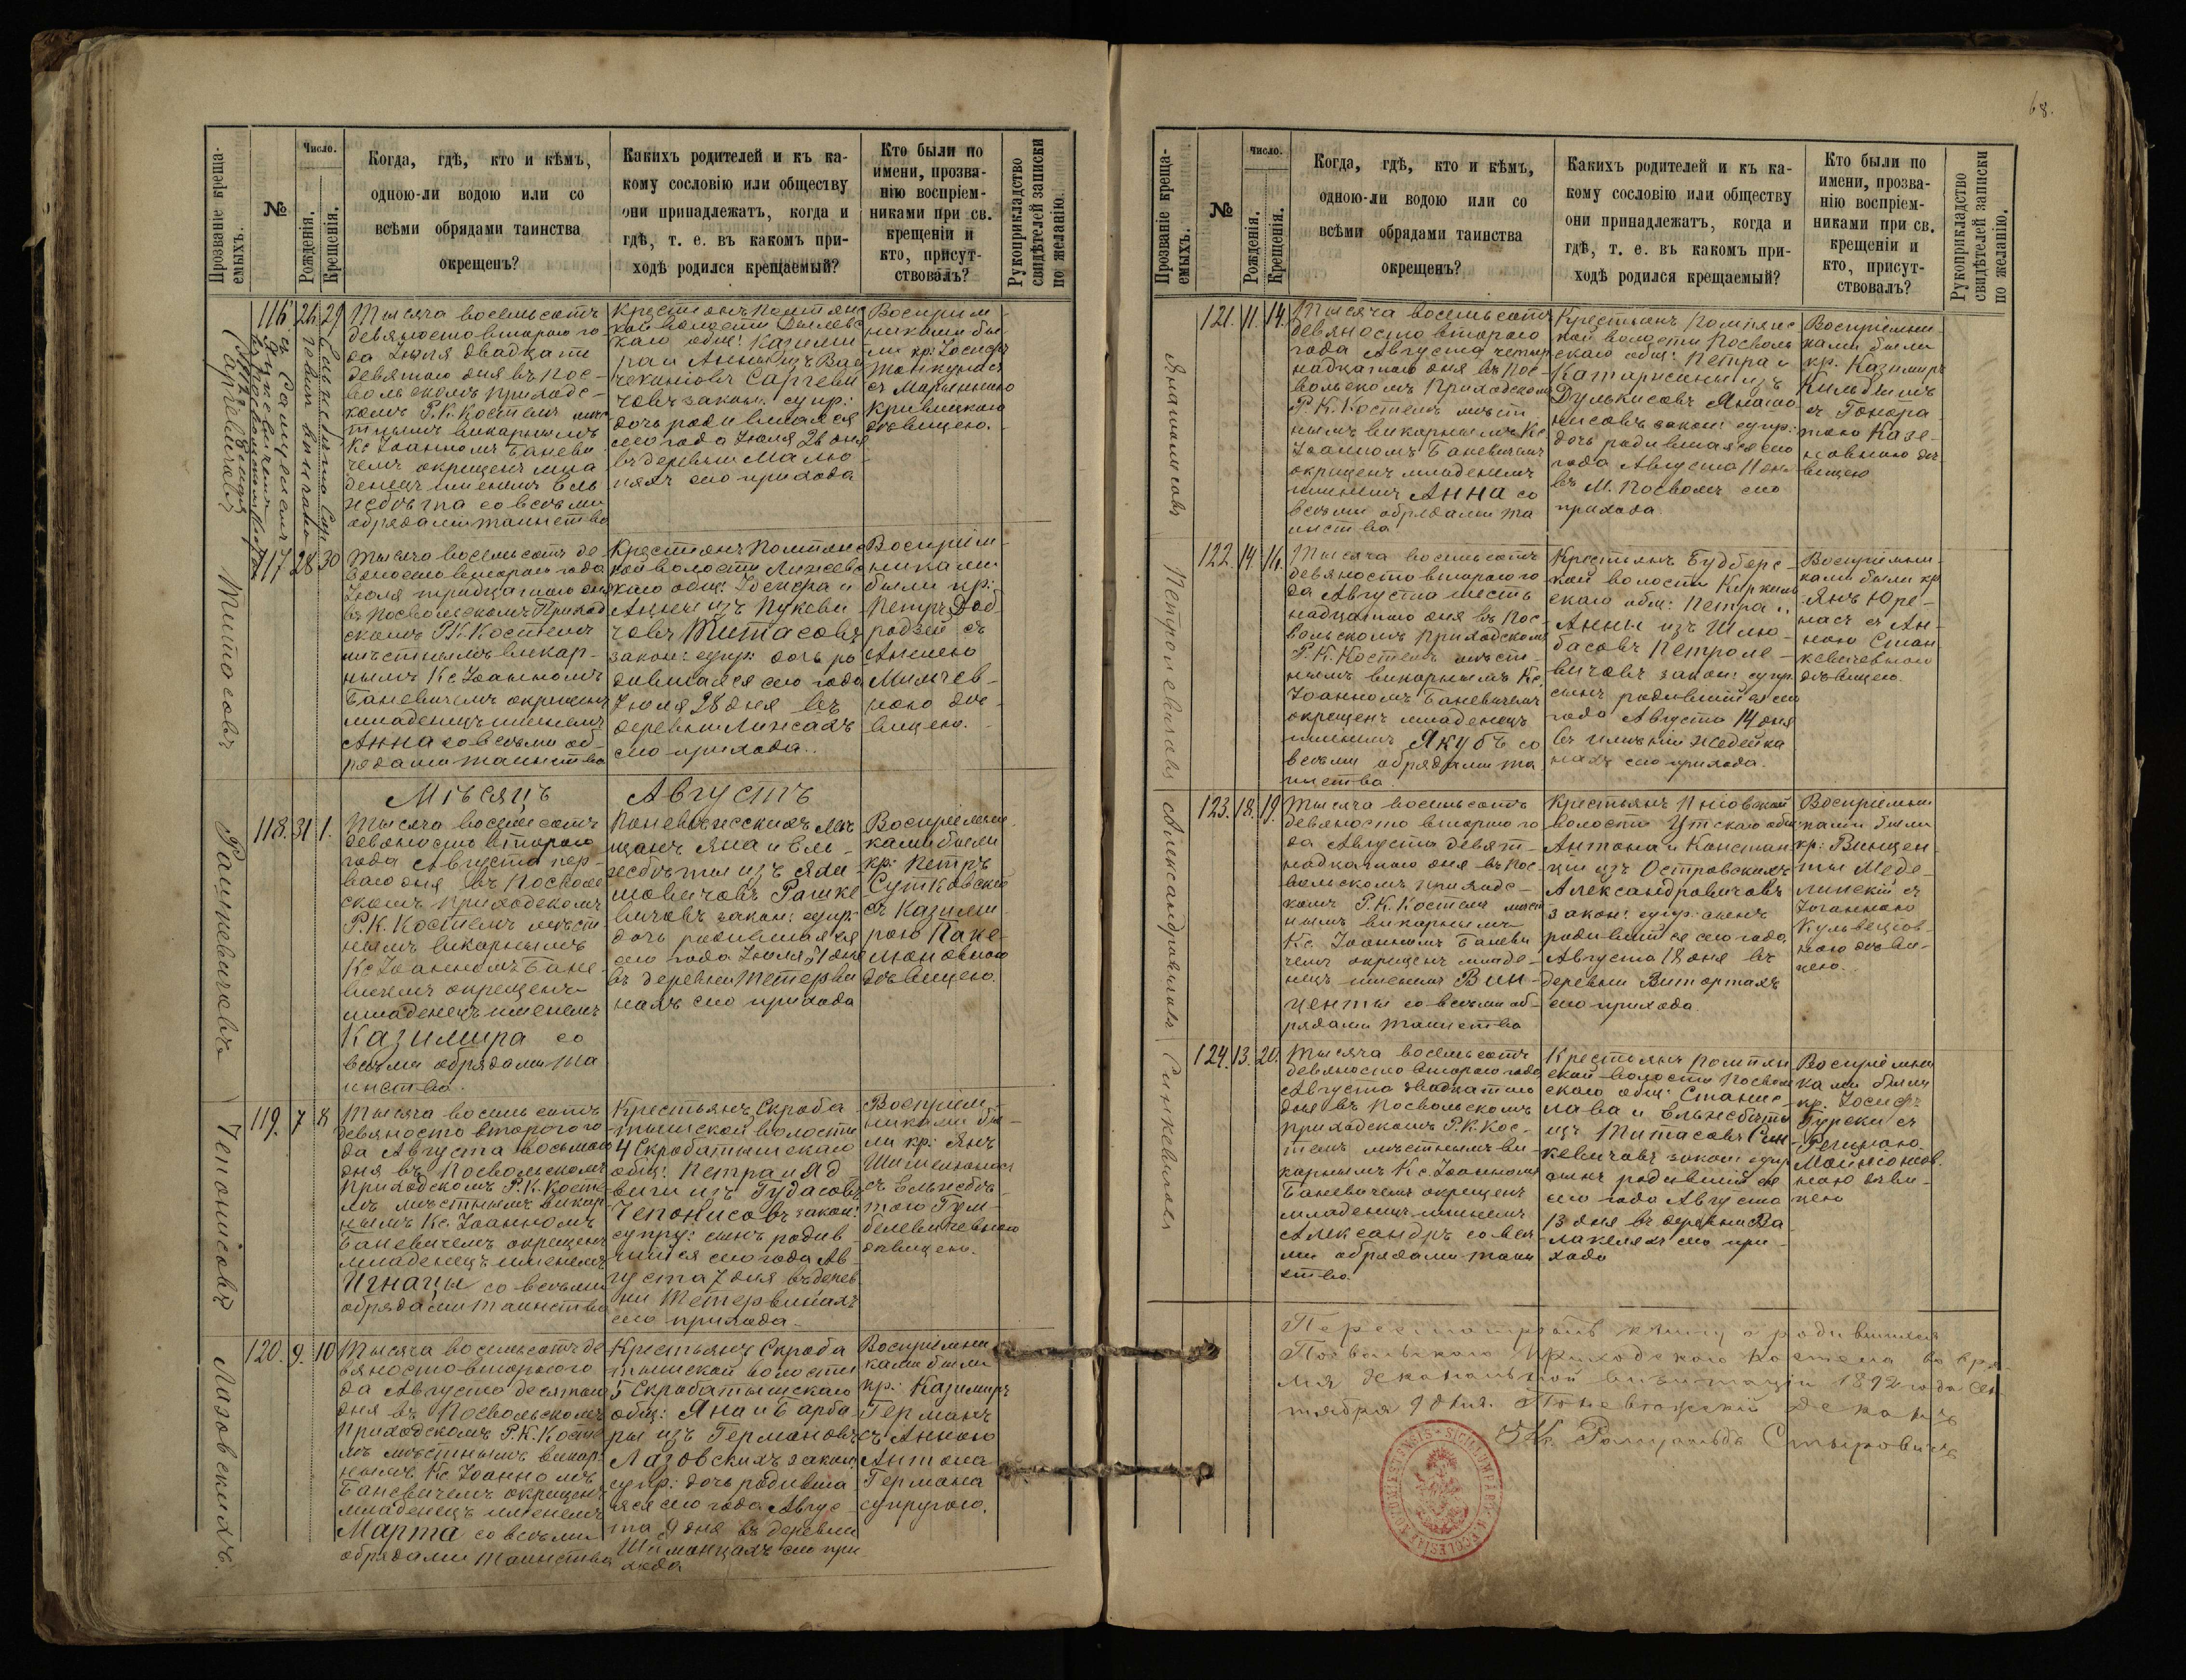 68.
Прозваніе креща-
емыхъ.
№
Число.
Рожденія.
Крещенія.
Когда, гдѣ, кто и кѣмъ,
одною-ли водою или со
всѣми обрядами таинства
окрещенъ?
Какихъ родителей и къ ка-
кому сословію или обществу
они принадлежатъ, когда и
гдѣ, т. е. въ какомъ при-
ходѣ родился крещаемый?
Кто были по
имени, прозва-
нію воспріем-
никами при св.
крещеніи и
кто, присут-
ствовалъ?
Рукоприкладство
свидѣтелей записки
по желанію.
116. 26 29
Тысяча восемьсотъ
девяносто второго го-
да Іюля двадцать
девятого дня въ Пос-
вольскомъ приходс-
комъ Р. К. Костелѣ мѣс
тнымъ викарнымъ
Кс Іоанномъ Баневи
чемъ окрещенъ мла
денецъ именемъ Ель
жбѣта со всѣми
обрядами таинства
Крестьянъ Помпянс
кой волости
каго общ: Казими
ра и Анны изъ
Сарпеви
човъ закон. супр:
дочь родившаяся
сего года Іюля 26 дня
въ деревни Малю
няхъ сего прихода
Воспріем-
никами бы-
ли кр: Іосифъ
съ Марьянною
Кривицкою
дѣвицею.
Титасовъ
117 28 30
Тысяча восемьсотъ де-
вяносто второго года
Іюля тридцатаго дня
въ Посвольскомъ Приход
скомъ Р. К. Костелѣ
мѣстнымъ викар-
нымъ Кс Іоанномъ
Баневичемъ окрещенъ
младенецъ именемъ
Анна со всѣми об-
рядами таинства
Крестьянъ Помпянс
кой волости
каго общ: Іосифа и
Анны изъ Пукеви
човъ Титасовъ
закон: супр: дочь ро
дившаяся сего года
Іюля 28 дня въ
деревни
сего прихода..
Воспріем-
никами
были кр:
Петръ
съ
Анелею
ною дѣ-
вицею.
Мѣсяцъ Августъ
Рашкевичовъ
118. 31 1.
Тысяча восемьсотъ
девяносто второго
года Августа пер-
ваго дня въ Посволь
скомъ приходскомъ
Р. К. Костелѣ мѣст
нымъ викарнымъ
Кс Іоанномъ Бане
вичемъ окрещенъ
младенецъ именемъ
Казимира со
всѣми обрядами та
инства.
Поневѣжскихъ мѣ
щанъ Яна и Ель-
жбѣты изъ
Рашке
вичовъ закон: супр:
дочь родившаяся
сего года Іюля 31 дня
въ деревни Тетерви
нахъ сего прихода
Воспріемни
ками были
кр: Петръ
Сутковскій
съ Казими
рою
дѣвицею.
Чепонисовъ
119. 7 8
Тысяча восемьсотъ
девяносто второго го
да Августа восьмого
дня въ Посвольскомъ
приходскомъ Р. К. Косте
лѣ мѣстнымъ викар
нымъ Кс Іоанномъ
Баневичемъ окрещенъ
младенецъ именемъ
Игнацы со всѣми
обрядами таинства
Крестьянъ Скроба
тышской волости
4 Скробатышскаго
общ: Петра и Яд
виги изъ Гудасовъ
Чепонисовъ закон:
супр: сынъ родив-
шійся сего года Ав-
густа 7 дня въ дерев
ни Тетервинахъ
сего прихода.
Воспріем-
никами бы-
ли кр: Янъ
съ Ельжбѣ-
тою Гум-
белевичевною
дѣвицею.
Лазовскихъ.
120. 9. 10
Тысяча восемьсотъ де
вяносто второго го
да Августа десятаго
дня въ Посвольскомъ
приходскомъ Р. К. Косте
лѣ мѣстнымъ викар
нымъ Кс Іоанномъ
Баневичемъ окрещенъ
младенецъ именемъ
Марта со всѣми
обрядами таинства
Крестьянъ Скроба
тышской волости
5 Скробатышскаго
общ: Яна и Барба
ры изъ Германовъ
Лазовскихъ закон:
супр: дочь родивша
яся сего года Авгус-
та 9 дня въ деревни
Шиманцахъ сего при
хода
Воспріемни
ками были
кр: Казимиръ
Германъ
съ Анною
Антона
Германа
супругою.
Прозваніе креща-
емыхъ.
№
число.
Рожденія.
Крещенія.
Когда, гдѣ, кто и кѣмъ,
одною-ли водою или со
всѣми обрядами таинства
окрещенъ?
Какихъ родителей и къ ка-
кому сословію или обществу
они принадлежатъ, когда и
гдѣ, т. е. въ какомъ при-
ходѣ родился крещаемый?
Кто были по
имени, прозва-
нію воспріем-
никами при св.
крещеніи и
кто, присут-
ствовалъ?
Рукоприкладство
свидѣтелей записки
по желанію.
121. 11. 14.
Тысяча восемьсотъ
девяносто второго
года Августа четыр
надцатаго дня въ Пос-
вольскомъ Приходскомъ
Р. К. Костелѣ мѣст
нымъ викарнымъ Кс
Іоанномъ Баневичемъ
окрещенъ младенецъ
именемъ Анна со
всѣми обрядами та
инства
Крестьянъ Помпянс
кой волости Посволь
скаго общ: Петра и
Катарисины изъ
Дулькисовъ
закон: супр:
дочь родившаяся сего
года Августа 11 дня
въ М. Посволѣ сего
прихода
Воспріемни-
ками были
кр. Казимиръ
съ Гонора
тою Казе-
новною дѣ
вицею
Петрокевичовъ
122. 14. 16.
Тысяча восемьсотъ
девяносто второго го
да Августа шест
надцатаго дня въ Пос-
вольскомъ Приходскомъ
Р. К. Костелѣ мѣст-
нымъ викарнымъ Кс.
Іоанномъ Баневичемъ
окрещенъ младенецъ
именемъ Якубъ со
всѣми обрядами та
инства.
Крестьянъ Будберс-
кой волости
скаго общ: Петра и
Анны изъ Шлю-
басовъ
вичовъ закон: супр
сынъ родившійся сего
года Августа 14 дня
въ имѣніи Жедейка
няхъ сего прихода.
Воспріемни-
ками были кр
Янъ Юре-
насъ съ Ан-
ною Стан
кевичевною
дѣвицею.
Александровичовъ
123. 18. 19.
Тысяча восемьсотъ
девяносто второго го
да Августа девят-
надцатаго дня въ Пос-
вольскомъ приходс-
комъ Р. К. Костелѣ мѣст
нымъ викарнымъ
Кс. Іоанномъ Баневи
чемъ окрещенъ младе-
нецъ именемъ Вин-
центы со всѣми об-
рядами таинства
Крестьянъ
волости общ
Антона и Констан
ціи изъ Островскихъ
Александровичовъ
закон: супр: сынъ
родившійся сего года
Августа 18 дня въ
деревни Витартахъ
сего прихода.
Воспріемни
ками были
кр: Винцен-
ты Меде-
линскій съ
Іоганною
ною дѣви-
цею.
Синкевичовъ
124. 13. 20.
Тысяча восемьсотъ
девяносто второго года
Августа двадцатаго
дня въ Посвольскомъ
приходскомъ Р. К. Кос-
телѣ мѣстнымъ ви-
карнымъ Кс. Іоанномъ
Баневичемъ окрещенъ
младенецъ именемъ
Александръ со всѣ-
ми обрядами таин
ства.
Крестьянъ Помпян
ской волости Посволь
скаго общ: Станис-
лава и Ельжбѣты
изъ Титасовъ Син-
кевичовъ закон: супр
сынъ родившійся
сего года Августа
13 дня въ деревни Ва-
лакеляхъ сего при-
хода
Воспріемни
ками были
кр. Іосифъ
Гурски съ
Региною
ною дѣви-
цею
Пересмотрѣлъ книгу о родившихся
Посвольскаго Приходскаго Костела во вре-
мя деканальной визитаціи 1892 года Сен-
тября 9 дня. Поневѣжскій деканъ
Кс. Ромуальдъ Стыровичъ